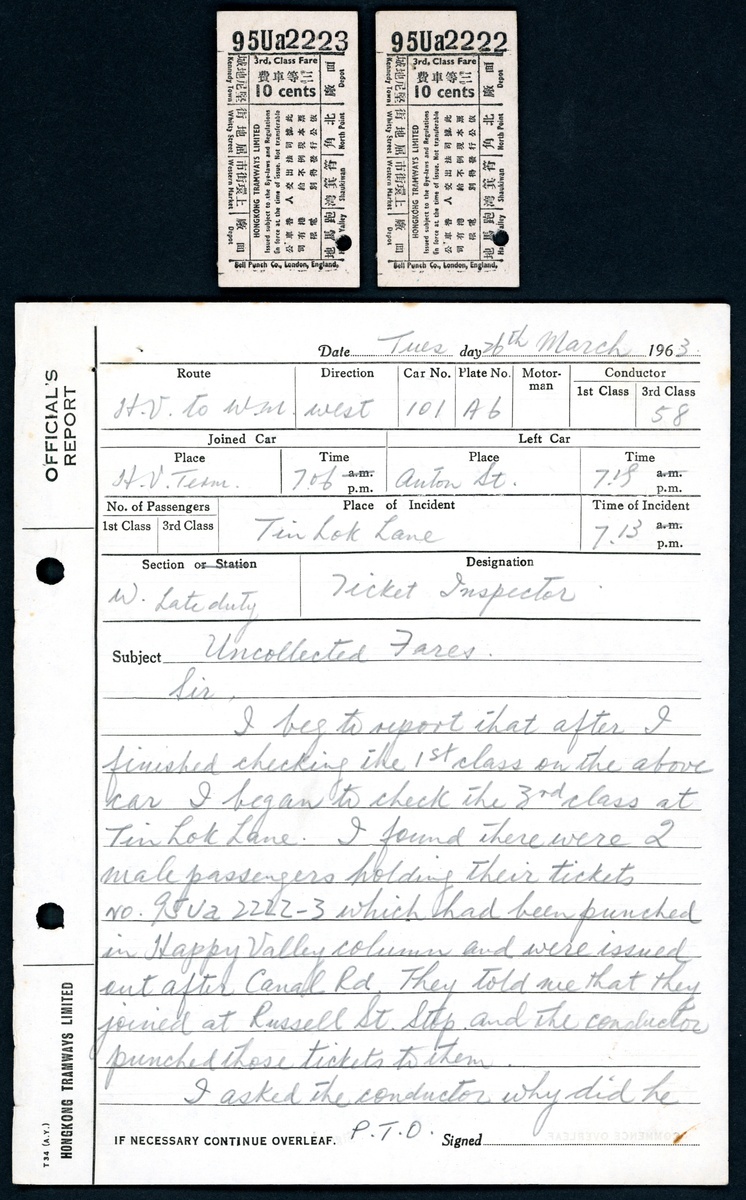 95Ua2223
3rd, Class Fare
費車等三
10 cents
堅尼地城
Kennedy Town
屈地街
Whitty Street
上環街市
Western Market
廠 面
Depot
HONGKONG TRAMWAYS LIMITED
Issued subject to the Bye-laws and Regulations
En force at the time of issue. Not transferable
Depot
北角
North Point
筲箕灣
Shaukiwan
跑馬地
Valley
Bell Punch Co., London, England,
95Ua2222
3rd, Class Fare
費車等三
10 cents
堅尼地城
Kennedy Town
屈地街
Whitty Street
上環街市
Western Market
廠 面
Depot
HONGKONG TRAMWAYS LIMITED
Issued subject to the Bye-laws and Regulations
En force at the time of issue. Not transferable
Depot
北角
North Point
筲箕灣
Shaukiwan
跑馬地
Valley
Bell Punch Co., London, England,
OFFICIAL'S REPORT
Date Tues day 26th March 1963.
Route Direction Car No. Plate No. Motor-man Conductor
1st Class 3rd Class
H.V. to W.M. west 101 A6 58
Joined Car Left Car
Place Time Place Time
H.V. Term. 7.06 a.m. p.m. Anton St. 7.15 a.m. p.m.
No. of Passengers Place of Incident Time of Incident
1st Class 3rd Class Tin Lok Lane 7.13 a.m. p.m.
Section or Station Designation
W. Late duty Ticket Inspector
Subject Uncollected Fares.
Sir,
I beg to report that after I
finished checking the 1st class on the above
car I began to check the 3rd class at
Tin Lok Lane. I found there were 2
male passengers holding their tickets
no. 95Ua 2222-3 which had been punched
in Happy Valley column and were issued
out after Canal Rd. They told me that they
joined at Russell St. Stop and the conductor
punched those tickets to them.
I asked the conductor why did he
IF NECESSARY CONTINUE OVERLEAF. P.T.O. Signed
T 34 (A.Y.)
HONGKONG TRAMWAYS LIMITED